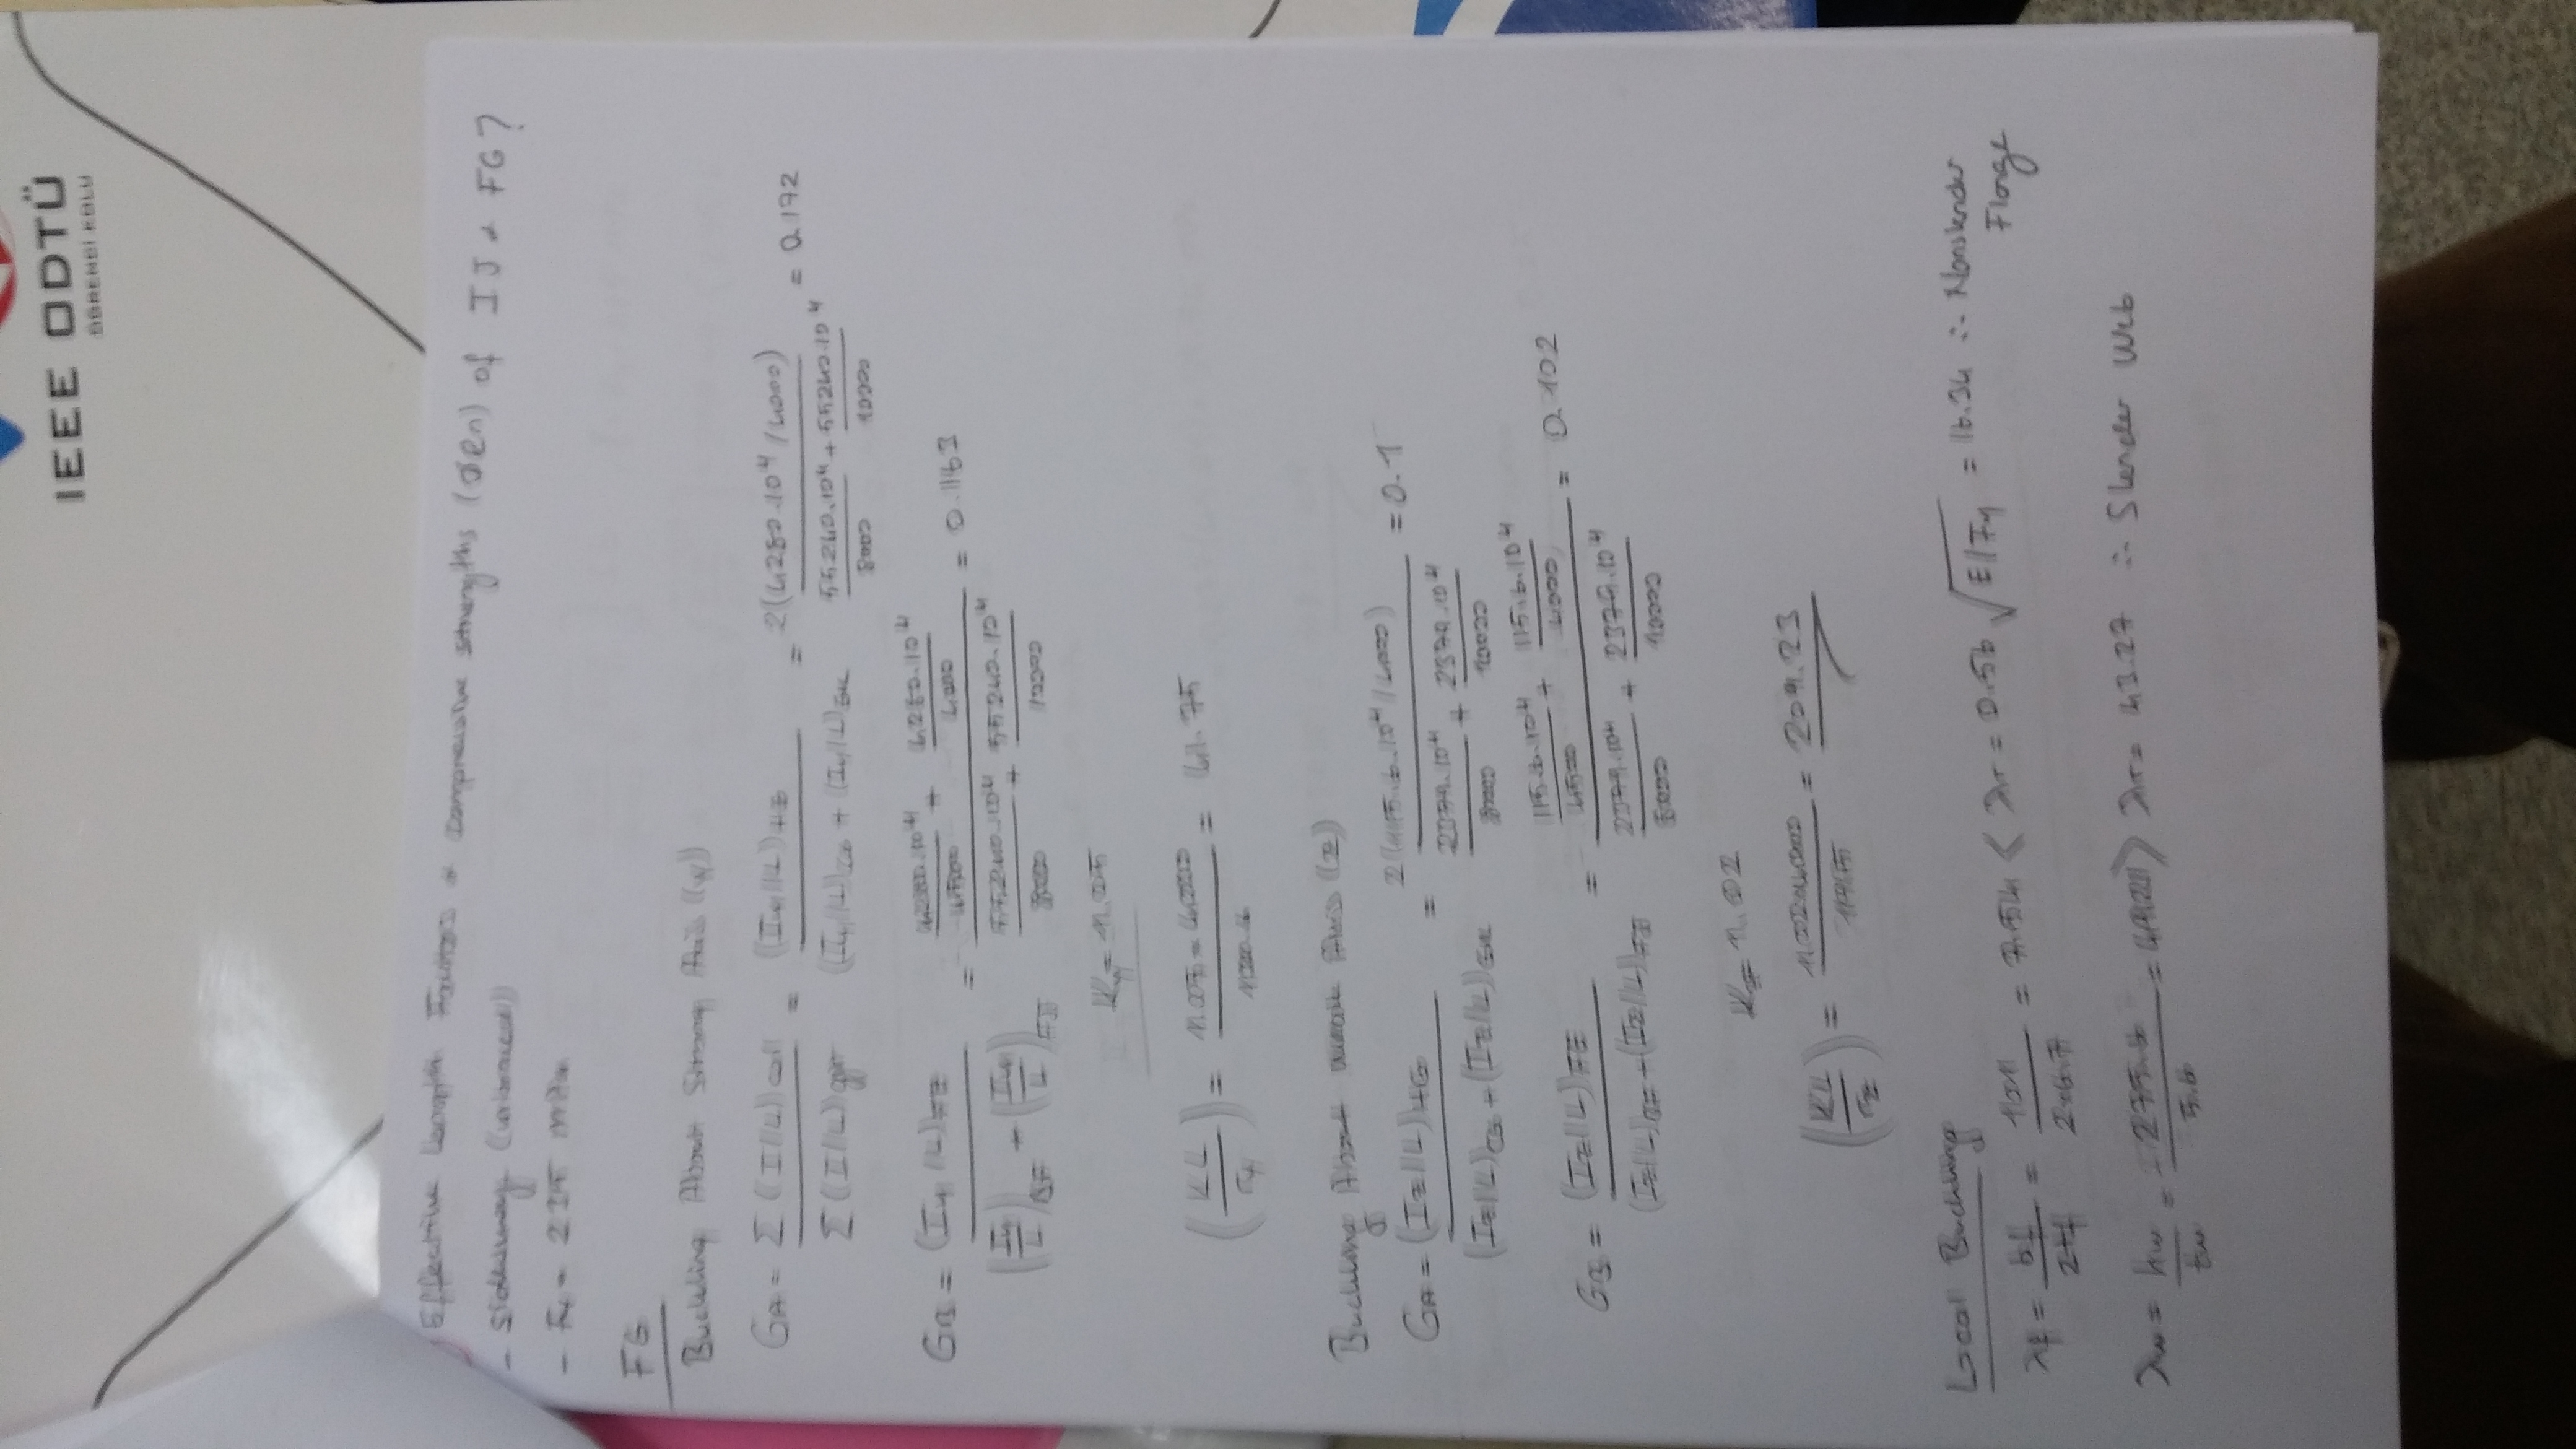 IEEE ODTÜ
ÖĞRENCİ KOLU
Effective Length Factors + compressive strengths (ØRn) of IJ & FG?
- Sidesway (unbraced)
- Fy = 235 MPa
FG
Buckling About Strong Axis (y)
GA = Σ(I/L)col / Σ(I/L)gir = (Iy/L)HG / ((Iy/L)CG + (Iy/L)GK) = 2(4280.10⁴/4000) / (55240.10⁴/8000 + 55240.10⁴/10000) = 0.172
GB = (Iy/L)FE / ((Iy/L)BF + (Iy/L)FJ) = (4280.10⁴/4500 + 4280.10⁴/4000) / (55240.10⁴/8000 + 55240.10⁴/10000) = 0.163
Ky = 1.05
(KL/ry) = 1.05×4000 / 100.6 = 41.75
Buckling About weak Axis (z)
GA = (Iz/L)HG / ((Iz/L)CG + (Iz/L)GK) = 2(115.6.10⁴/4000) / (2379.10⁴/8000 + 2379.10⁴/10000) = 0.1
GB = (Iz/L)FE / ((Iz/L)BF + (Iz/L)FJ) = (115.6.10⁴/4500 + 115.6.10⁴/4000) / (2379.10⁴/8000 + 2379.10⁴/10000) = 0.102
Kz = 1.02
(KL/rz) = 1.02×4000 / = 209.23
Local Buckling
λf = bf/2tf = 101/2×6.7 = 7.54 < λr = 0.56 √E/Fy = 16.34 ∴ Nonslender Flange
λw = hw/tw = 275.6/5.6 = 49.21 > λr = 43.27 ∴ Slender Web